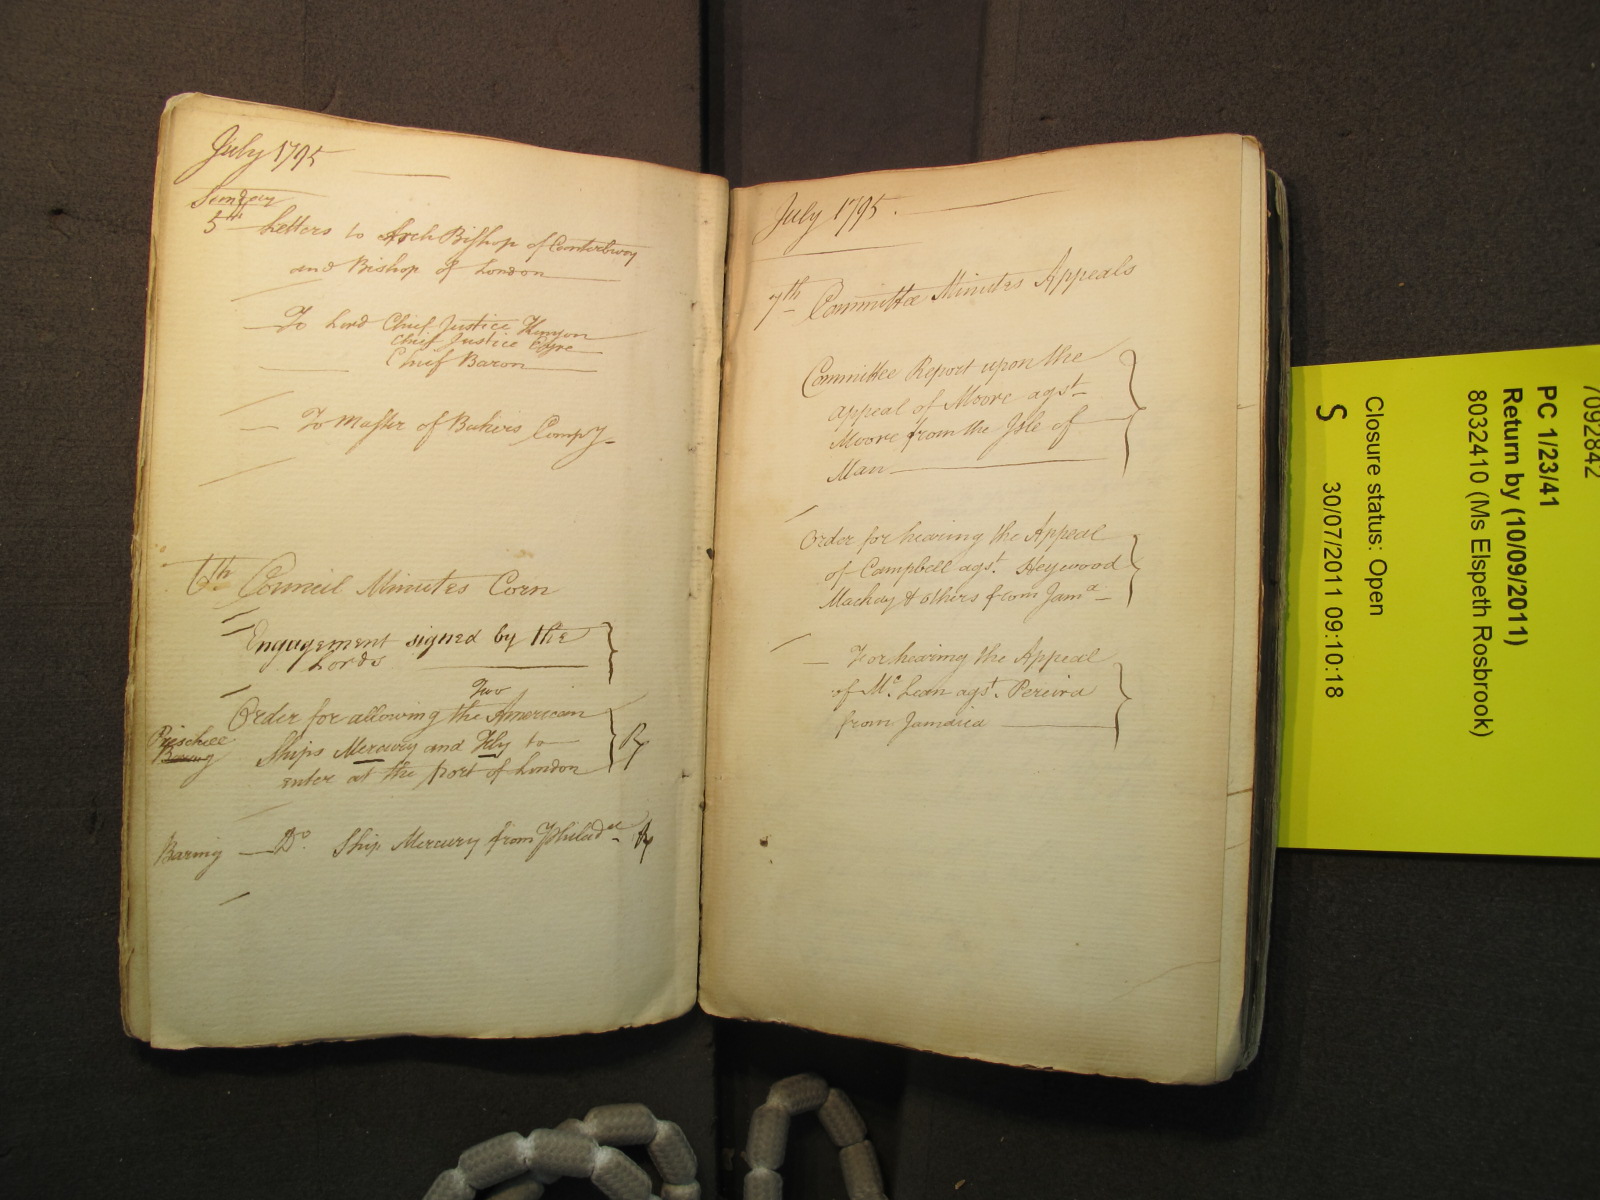 July 1795
Sunday
5th Letters to Arch Bishop of Canterbury
and Bishop of London
To Lord Chief Justice Kenyon
Chief Justice Eyre
Chief Baron
To Master of Bakers Compy
6th Council Minutes Corn
Engagement signed by the
Lords
Two
Order for allowing the American
Ships Mercury and to
enter at the port of London
Baring
Baring — Do. Ship Mercury from Philada
July 1795.
7th Committee Minutes Appeals
Committee Report upon the
appeal of Moore agst
Moore from the Isle of
Man
Order for hearing the Appeal
of Campbell agst. Heywood
Mackay & others from Jama
— For hearing the Appeal
of Mc. Lean agst. Pereira
from Jamaica
7092842
PC 1/23/41
Return by (10/09/2011)
8032410 (Ms Elspeth Rosbrook)
Closure status: Open
S 30/07/2011 09:10:18